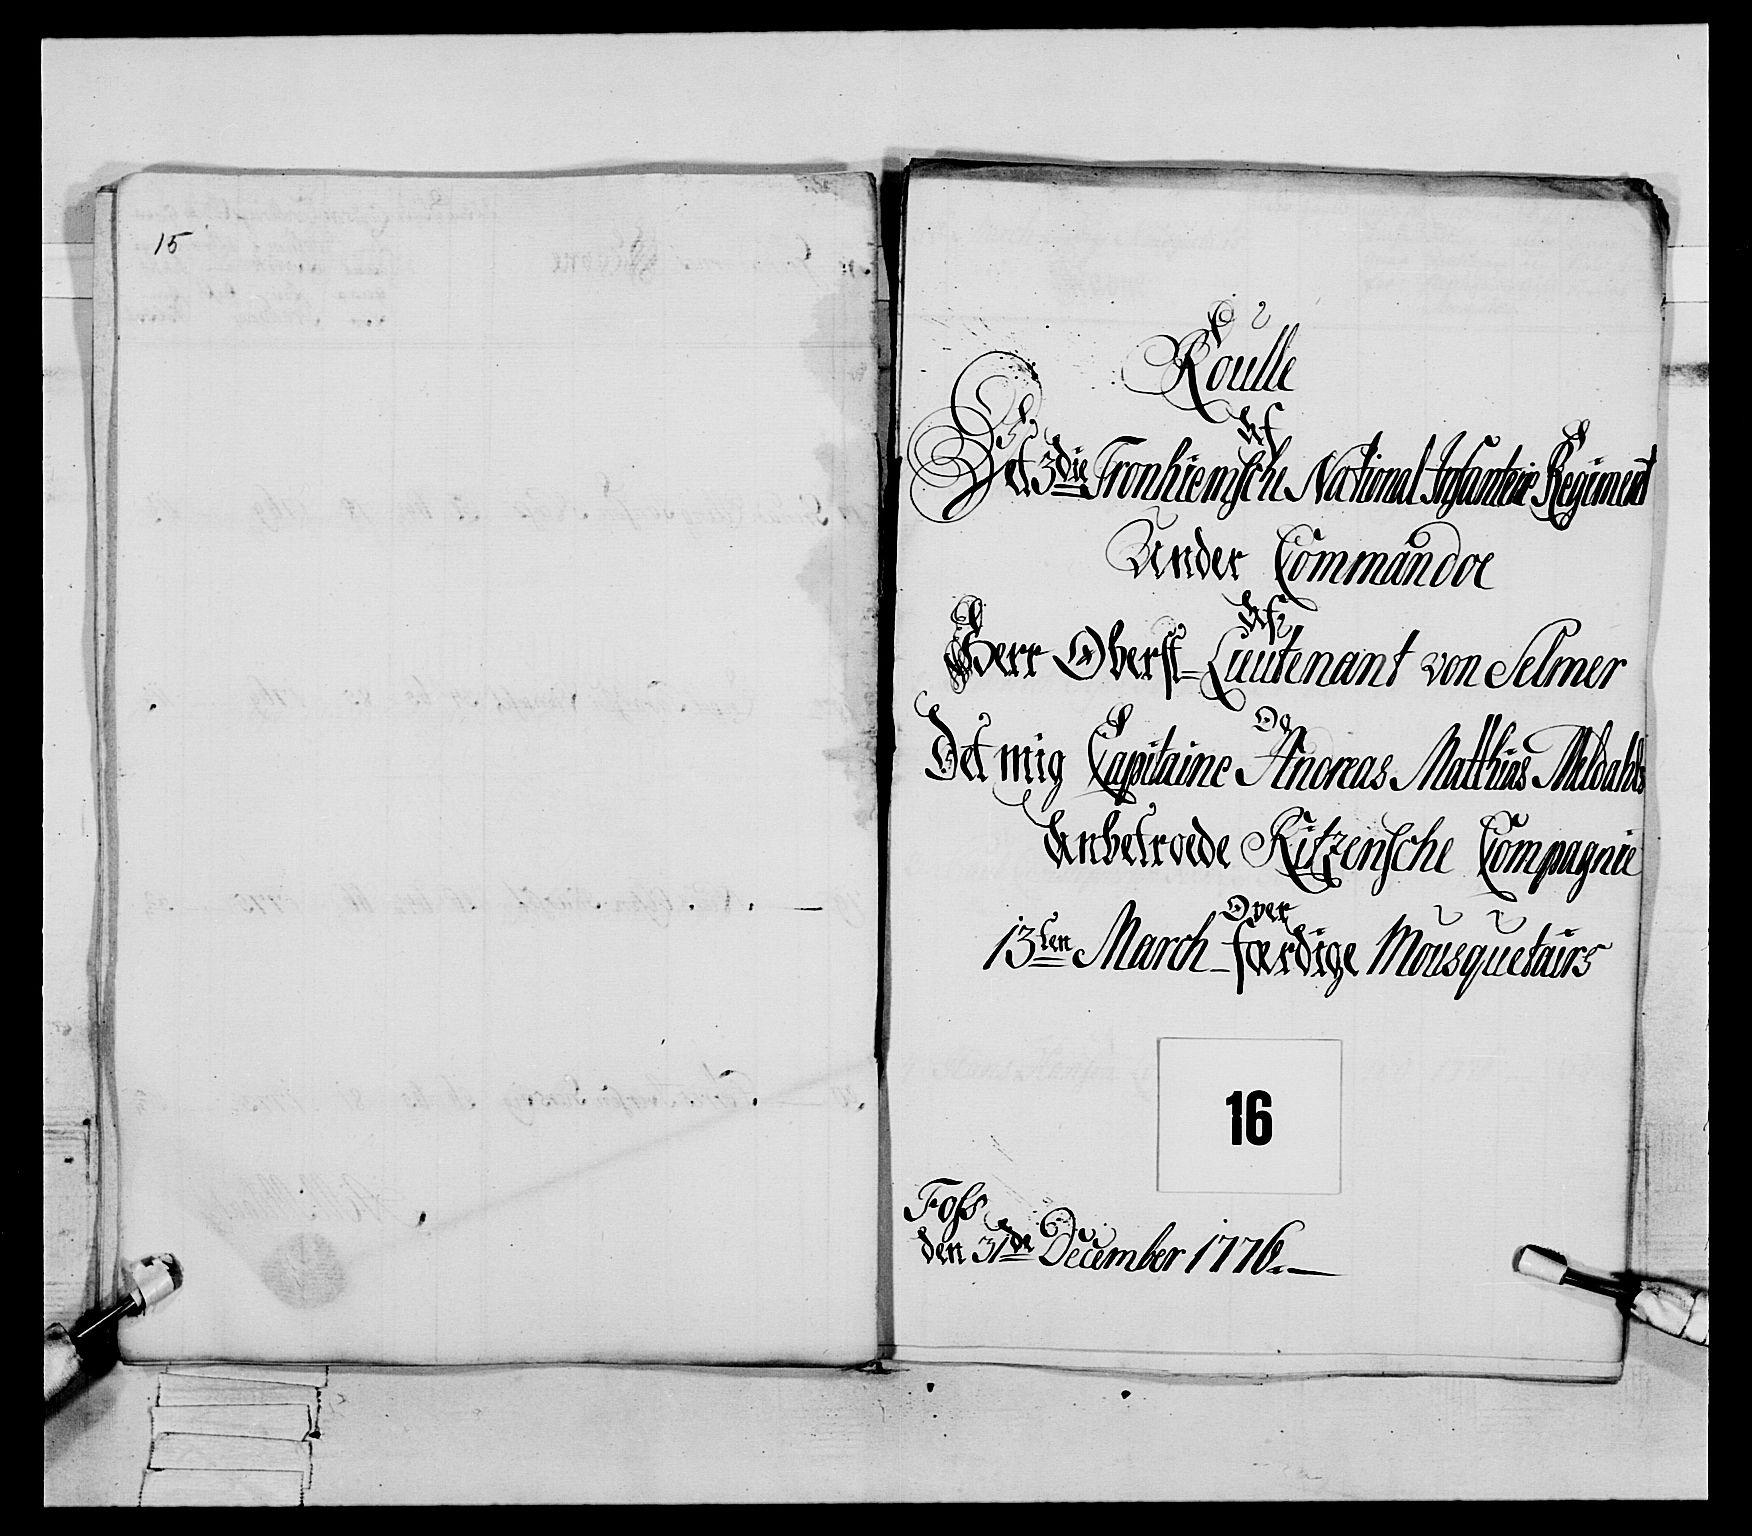 15
Roulle
af
Det 3die Tronhiemsche National Infanterie Regiment
Under Commandoe
af
Herr Oberst-Lieutenant von Selmer
Og
Det mig Capitaine Andreas Matthias Meldahls
Anbetroede Ritzensche Compagnie
Over
13ten March-færdige Mousquetairs
16
Foss
den 31de December 1776.